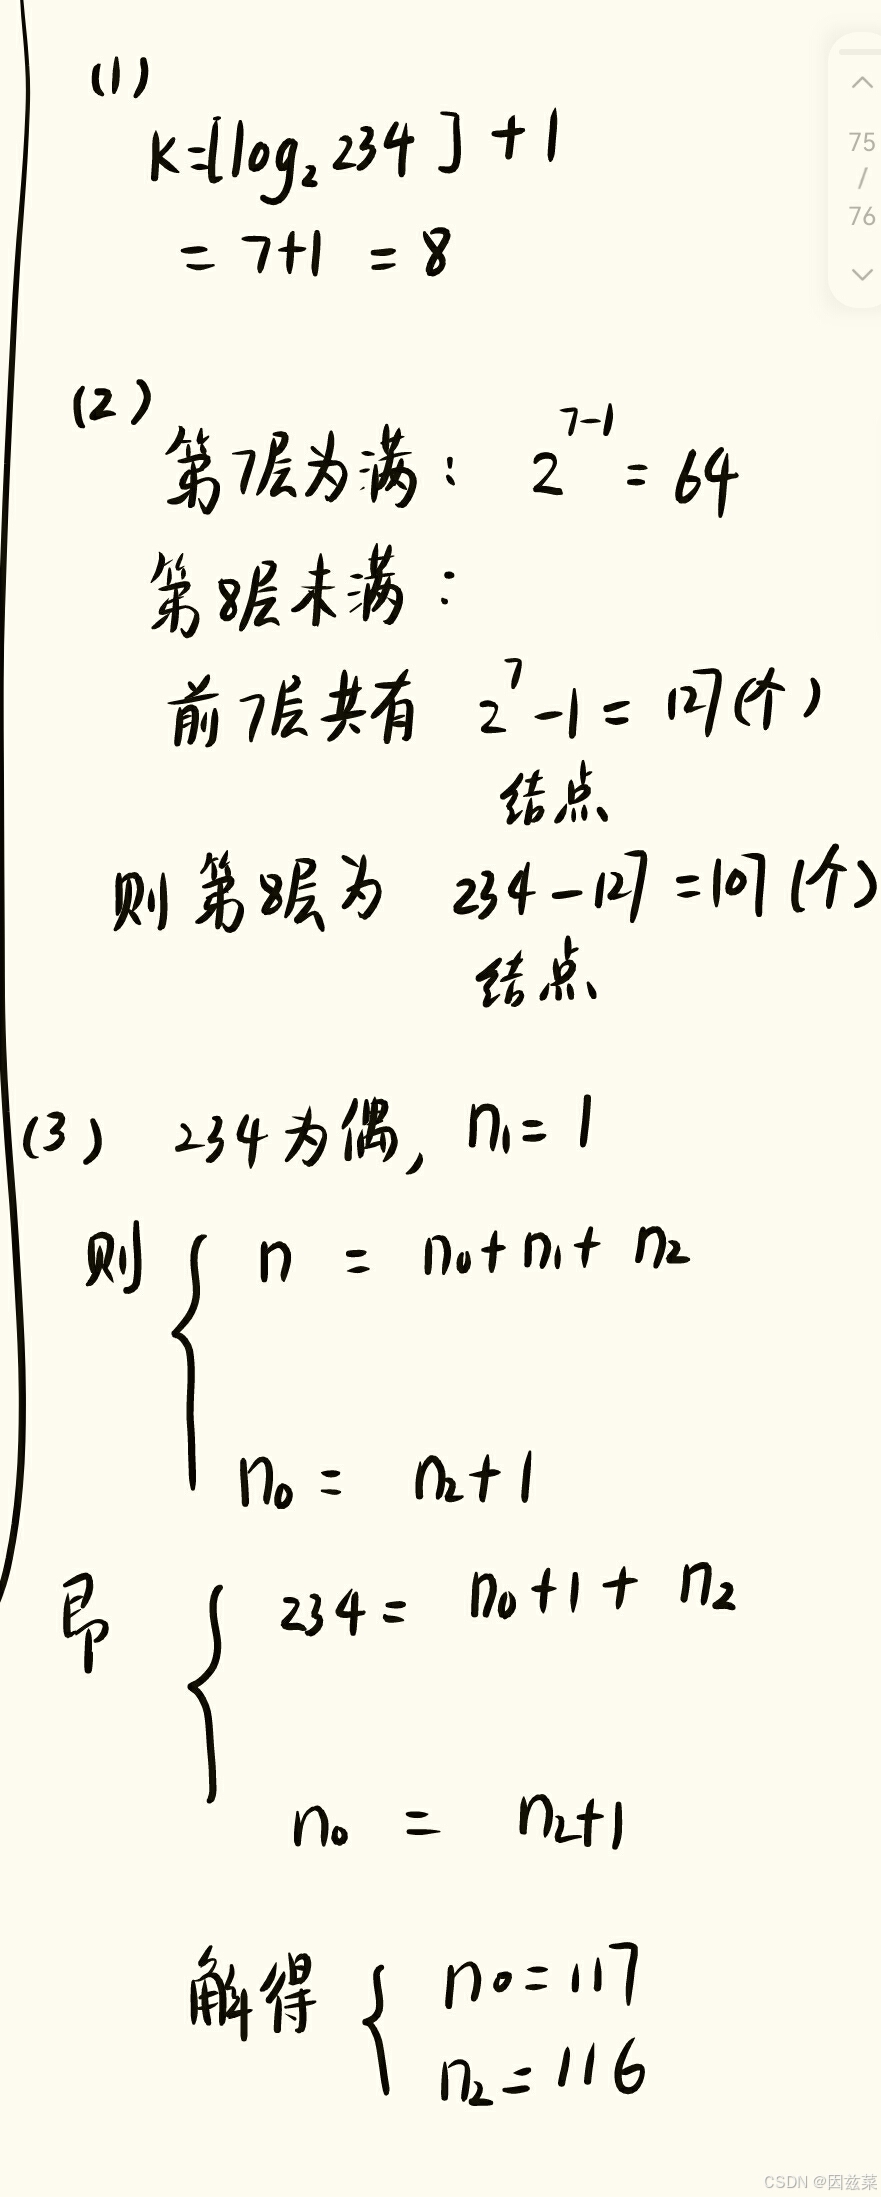 (1)
K=⌊log₂234⌋+1
= 7+1 = 8
(2)
第7层为满: 2⁷⁻¹ = 64
第8层未满:
前7层共有 2⁷-1 = 127(个)
结点
则第8层为 234-127=107(个)
结点
(3) 234为偶, n₁=1
则 { n = n₀+n₁+n₂
n₀ = n₂+1
即 { 234= n₀+1+n₂
n₀ = n₂+1
解得 { n₀=117
n₂=116
75
/
76
CSDN @因兹菜